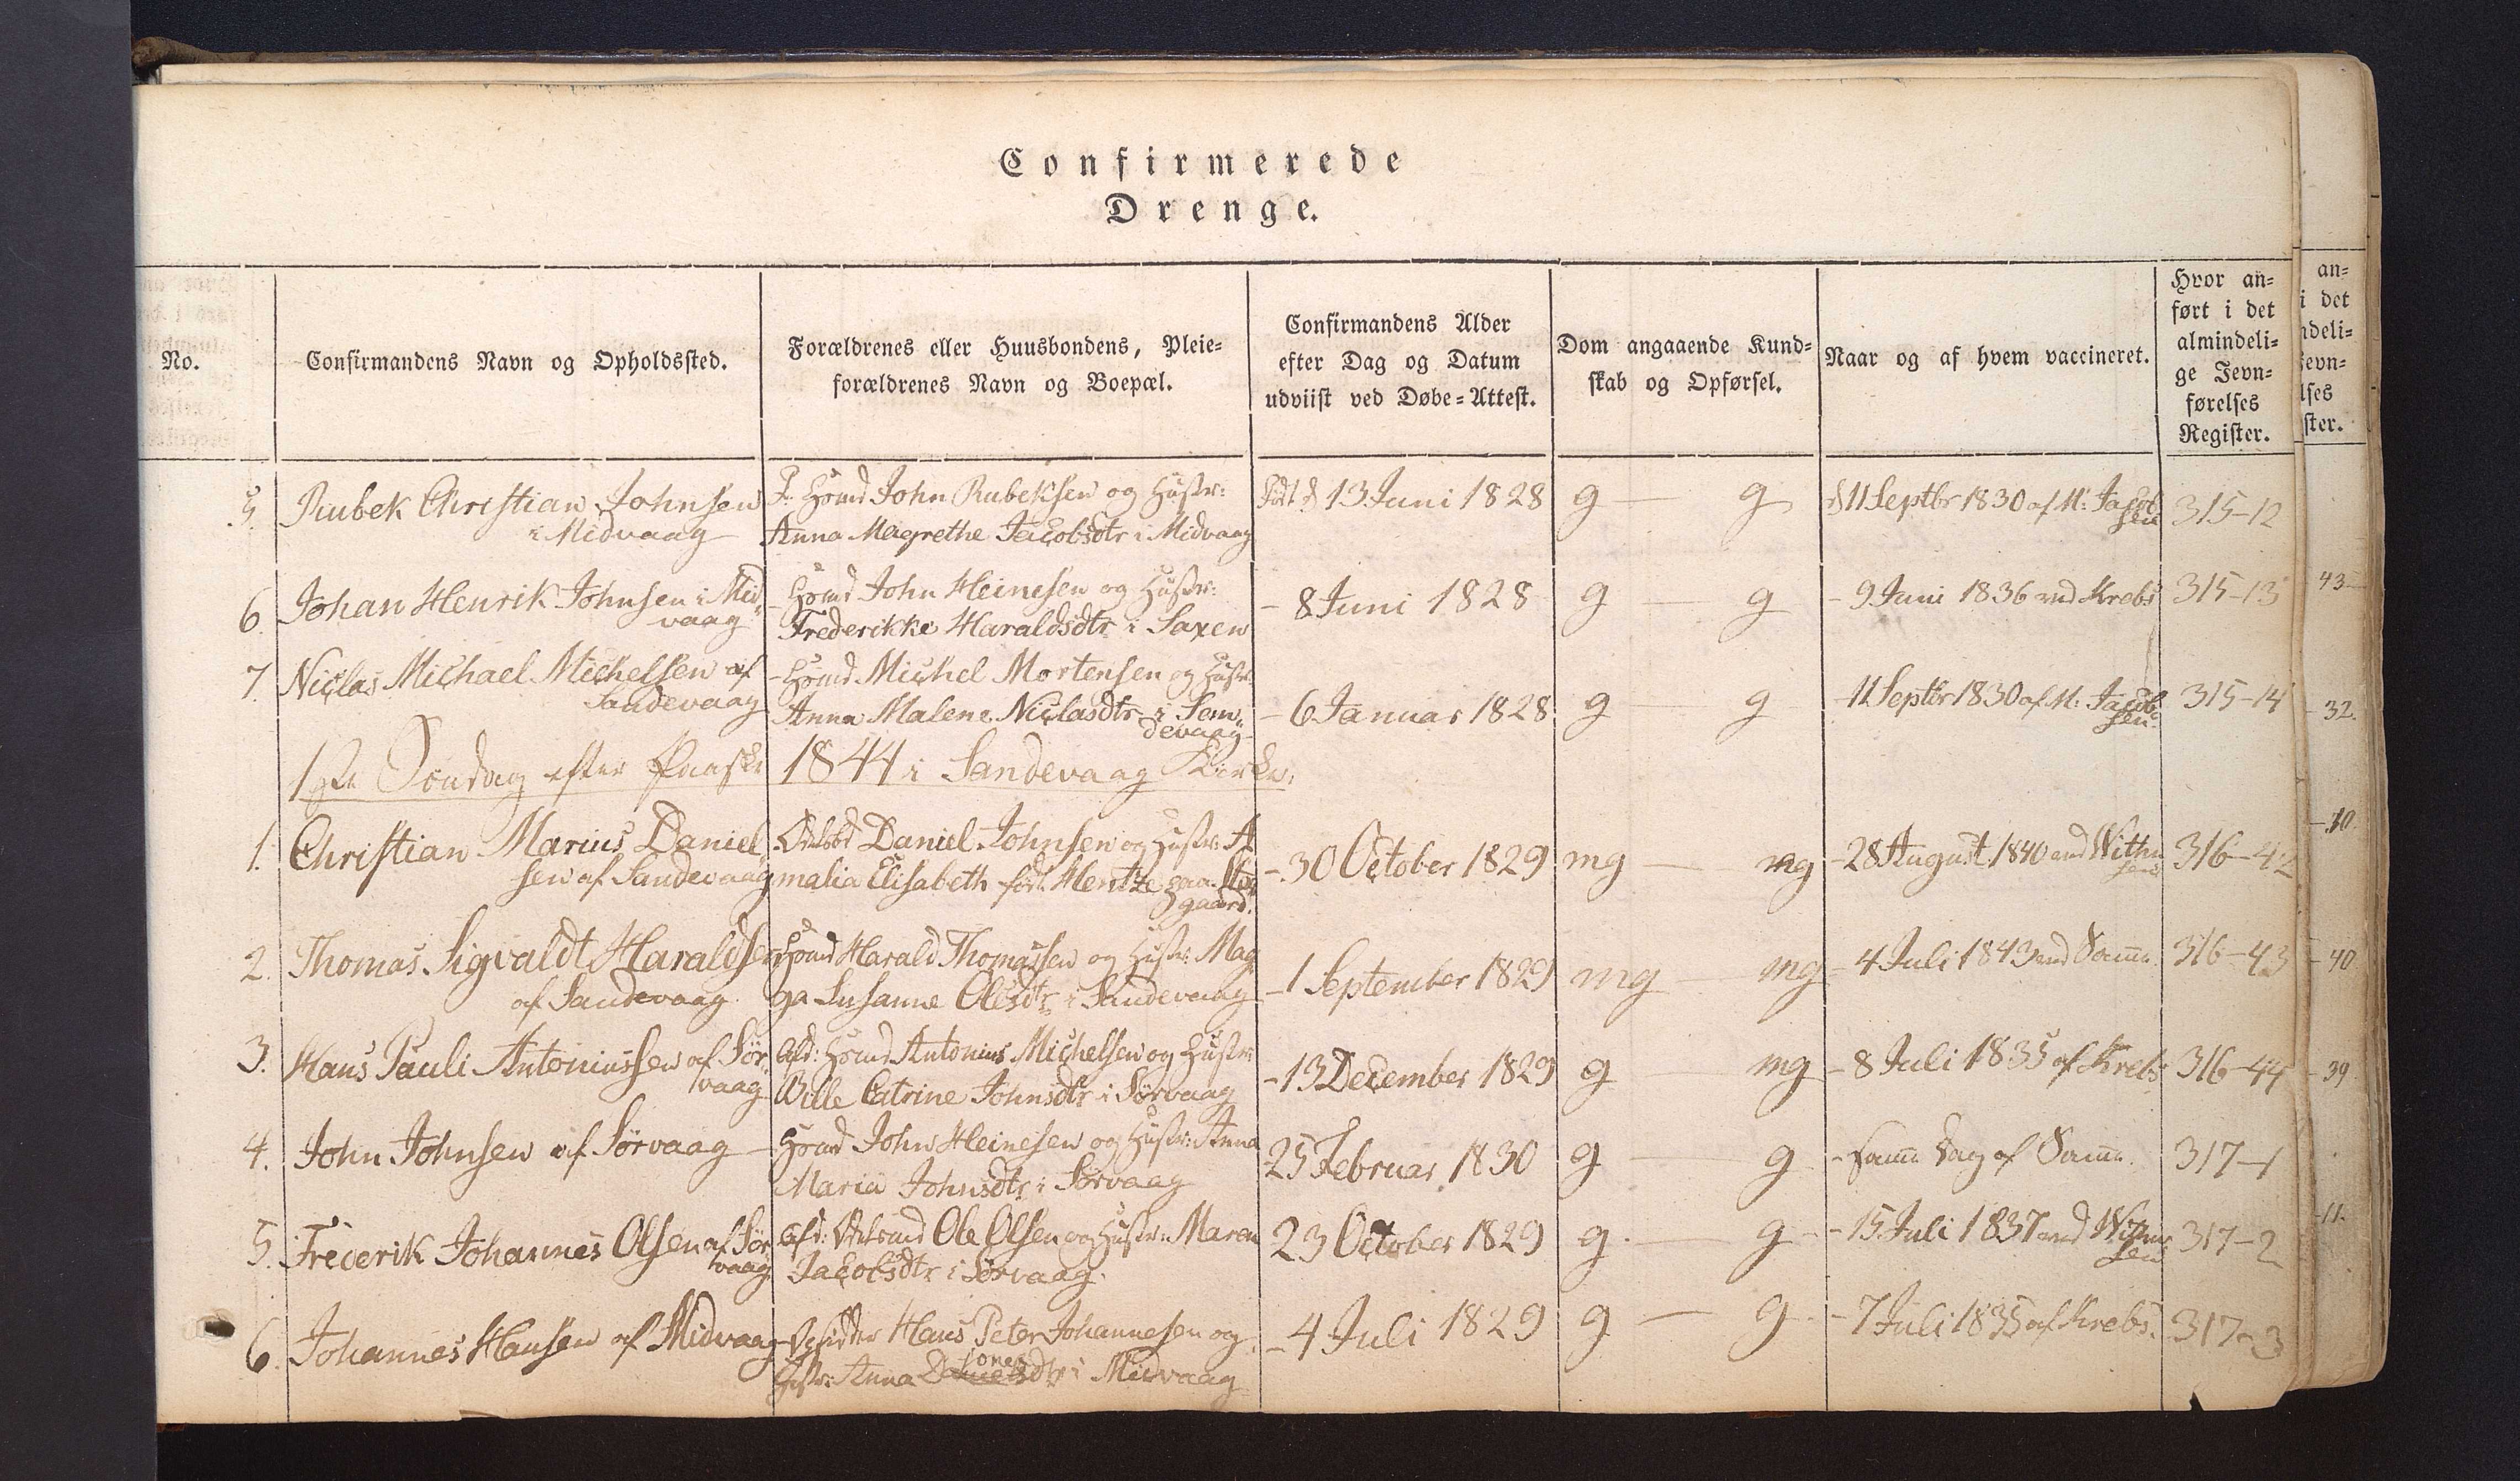 Confirmerede
Drenge.
No.
Confirmandens Navn og Opholdssted.
Forældrenes eller Huusbondens, Pleie-
forældrenes Navn og Boepæl.
Confirmandens Alder
efter Dag og Datum
udviist ved Døbe-Attest.
Dom angaaende Kund-
skab og Opførsel.
Naar og af hvem vaccineret.
Hvor an-
ført i det
almindeli-
ge Jevn-
førelses
Register.
an-
i det
ndeli-
Jevn-
lses
ster.
5. Rubek Christian Johnsen
i Midvaag
F. Hsmd John Rubeksen og Hustr:
Anna Magrethe Jacobsdtr i Midvaag
Født d 13 Juni 1828
g — g
d 11 Septbr 1830 af M: Jacob
sen
315-12
6. Johan Henrik Johnsen i Mid
vaag
- Hsmd John Heinesen og Hustr:
Frederikke Haraldsdtr i Saxen
- 8 Juni 1828
g — g
- 9 Juni 1836 ved Krebs
315-13
43
7. Niclas Michael Michelsen af
Sandevaag
- Hsmd Michel Mortensen og Hustr
Anna Malene Niclasdtr i San
devaag
- 6 Januar 1828
g — g
- 11 Septbr 1830 af M: Jacob
sen
315-14
- 32.
1ste Søndag efter Paaske 1844 i Sandevaag Kirke.
1. Christian Marius Daniel
sen af Sandevaag
Daniel Johnsen og Hustr: A
malia Elisabeth født Mentze paa
gaard.
- 30 October 1829
mg — mg
- 28 August 1840 ved Withu
sen
316-42
- 10.
2. Thomas Sigvaldt Haraldsen
af Sandevaag
Hsmd Harald Thomassen og Hustr: Mag
ga Susanne Olesdtr i Sandevaag
- 1 September 1829
mg — mg
- 4 Juli 1843 ved Samme
316-43
- 40
3. Hans Pauli Antoniussen af Sør
vaag
Afd: Hsmd Antonius Michelsen og Hustr:
Bille Catrine Johnsdtr i Sørvaag
- 13 December 1829
g — mg
- 8 Juli 1835 af Krebs
316-44
- 39
4. John Johnsen af Sørvaag
Hsmd John Heinesen og Hustr: Anna
Maria Johnsdtr i Sørvaag
25 Februar 1830
g — g
- samme Dag af Samme.
317-1
5. Frederik Johannes Olsen af Sør
vaag
Afd: Ole Olsen og Hustr: Maren
Jacobsdtr i Sørvaag.
23 October 1829
g. — g
- 15 Juli 1837 ved Withu
sen
317-2
- 11.
6. Johannes Hansen af Midvaag
- Hans Peter Johannesen og
Hstr: Anna Danielsdtr i Midvaag
Jones
- 4 Juli 1829
g — g.
- 7 Juli 1835 af Krebs.
317-3